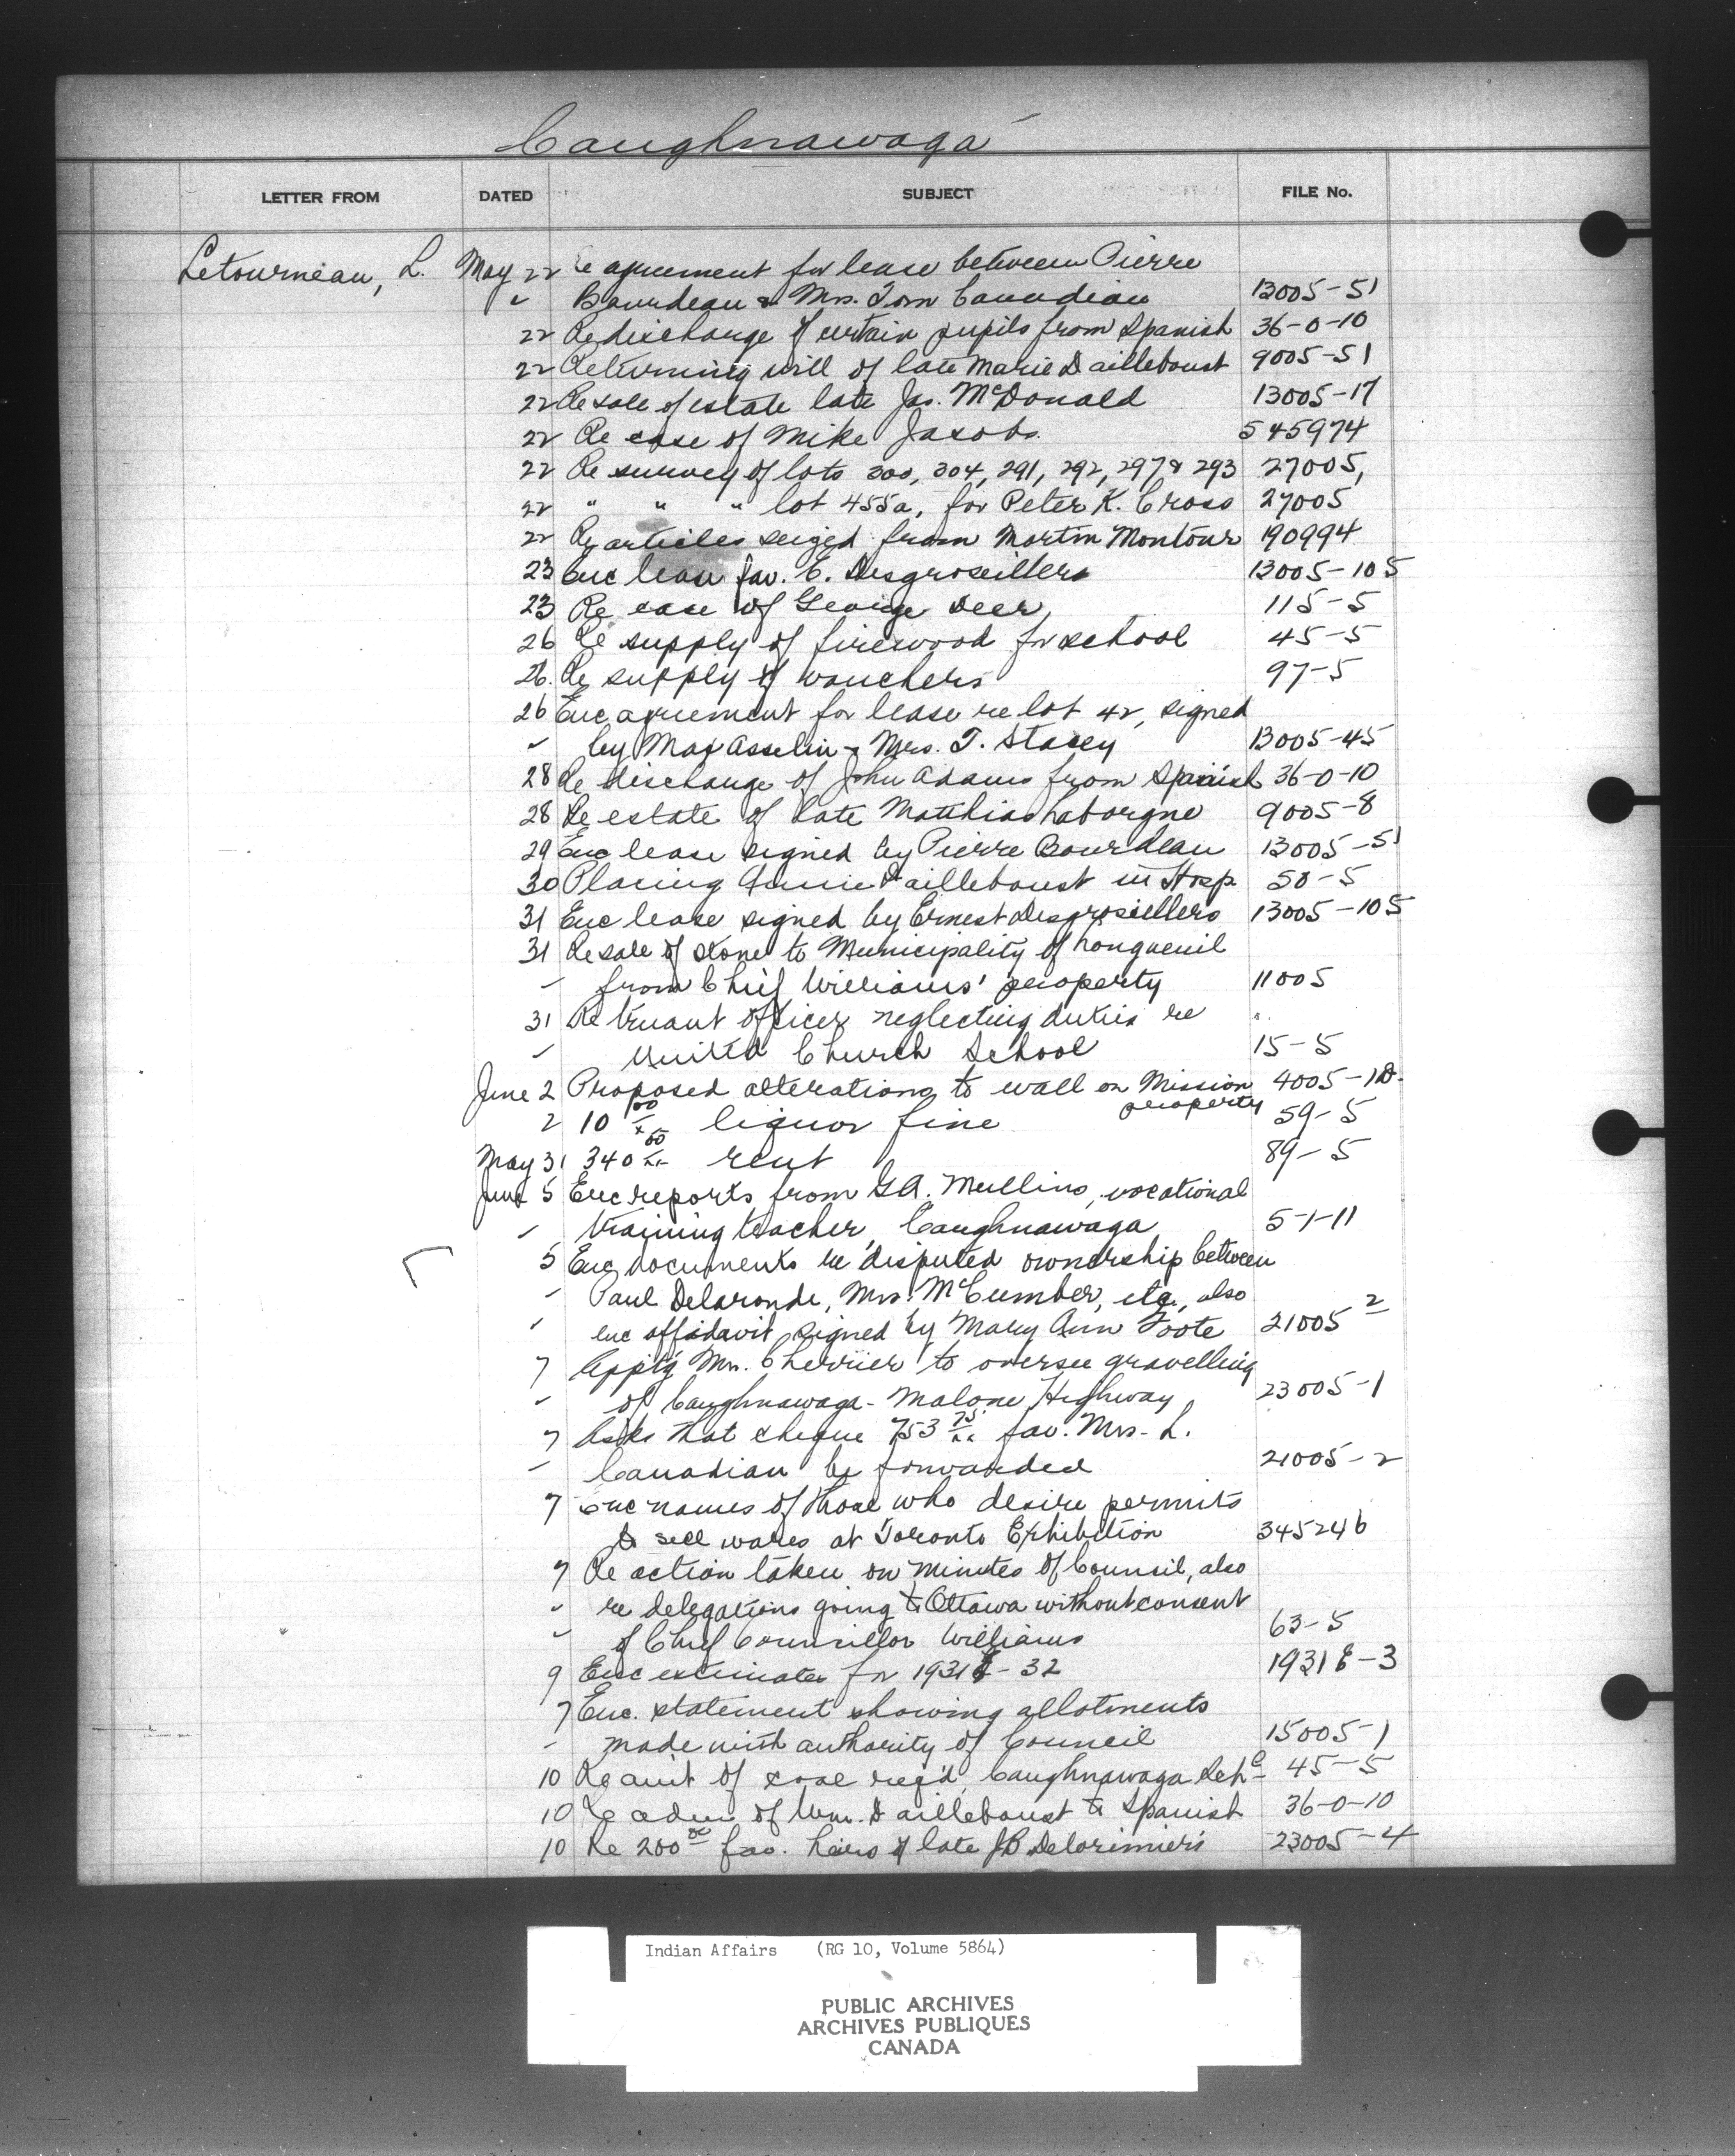 Caughnawaga
LETTER FROM DATED SUBJECT FILE No.
Letourneau, L. May 22 Re agreement for lease between Pierre
" Bourdeau & Mrs. Tom Canadian 13005-51
22 Re discharge of certain pupils from Spanish 36-0-10
22 Returning will of late Marie D'ailleboust 9005-51
22 Re sale of estate late Jas. McDonald 13005-17
22 Re case of Mike Jacobs 545974
22 Re survey of lots 300, 304, 291, 292, 297 & 293 27005,
22 " " " lot 455a, for Peter K. Cross 27005
22 Re articles seized from Martin Montour 190994
23 Enc lease fav. E. Desgroseillers 13005-105
23 Re case of George Deer 115-5
26 Re supply of firewood for school 45-5
26. Re supply of vouchers 97-5
26 Enc agreement for lease re lot 42, signed
" by Max Asselin & Mrs. T. Stacey 13005-45
28 Re discharge of John Adams from Spanish 36-0-10
28 Re estate of late Matthias Laborgne 9005-8
29 Enc lease signed by Pierre Bourdeau 13005-51
30 Placing Annie D'ailleboust in Hosp 50-5
31 Enc lease signed by Ernest Desgroseillers 13005-105
31 Re sale of stone to Municipality of Longueuil
" from Chief Williams' property 11005
31 Re truant officer neglecting duties re "
" United Church School 15-5
June 2 Proposed alterations to wall on Mission property 4005-1D.
2 10 00/xx liquor fine 59-5
May 31 340 00/xx rent 89-5
June 5 Enc reports from G.A. Mullins, vocational
" training teacher, Caughnawaga 5-1-11
5 Enc documents re disputed ownership between
" Paul Delaronde, Mrs. McCumber, etc., also
" enc affidavit signed by Mary Ann Foote 21005 2
7 Apptg Mr. Cherrier to oversee gravelling
" of Caughnawaga-Malone Highway 23005-1
7 Asks that cheque 753 75/xx fav. Mrs. L.
" Canadian be forwarded 21005-2
7 Enc names of those who desire permits
to sell wares at Toronto Exhibition 345246
7 Re action taken on minutes of Council, also
" re delegations going to Ottawa without consent
" of Chief Councillor Williams 63-5
9 Enc estimates for 1931-32 1931E-3
7 Enc. statement showing allotments
" made with authority of Council 15005-1
10 Re amt of coal req'd Caughnawaga Sch 45-5
10 Re adm of Wm. D'ailleboust to Spanish 36-0-10
10 Re 200 00 fav. heirs of late JB Delorimier's 23005-4
Indian Affairs (RG 10, Volume 5864)
PUBLIC ARCHIVES
ARCHIVES PUBLIQUES
CANADA